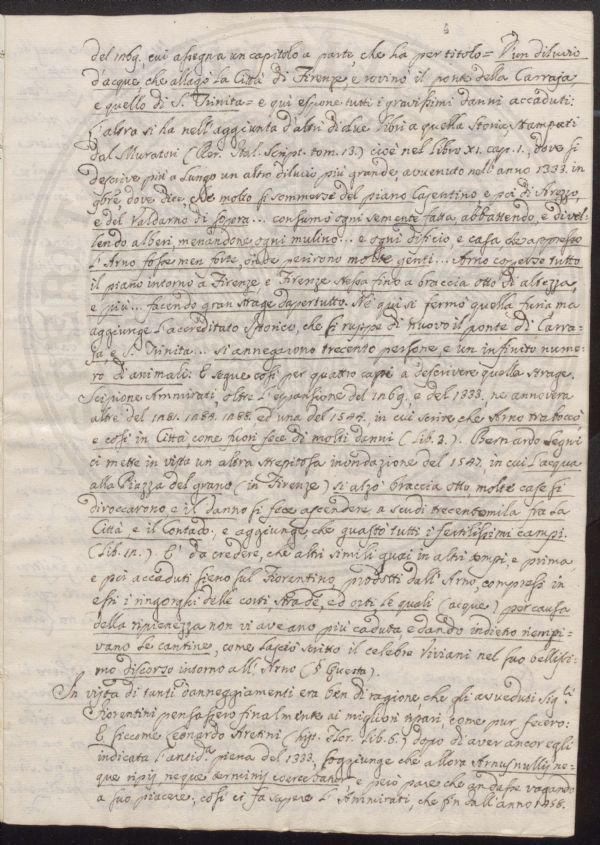 4
del 1269. cui assegna un capitolo a parte, che ha per titolo = D'un diluvio
d'acque, che allagò la Città di Firenze, e rovinò il ponte della Carraja
e quello di S. Trinita = e qui espone tutti i gravissimi danni accaduti:
L'altra si ha nell'aggiunta d'altri di due libri a quella Storia stampati
dal Muratori (Rer. Ital. Script. tom. 13.) cioè nel libro XI. cap. 1., dove si
descrive più a lungo un altro diluvio più grande avvenuto nell'anno 1333. in
9bre, dove dice, che molto si sommerse del piano Casentino e poi di Arezzo,
e del Valdarno di sopra... consumò ogni sementa fatta, abbattendo, e divel=
lendo alberi, menandone ogni mulino... e ogni dificio, e casa appresso
l'Arno fosse men forte, onde perirono molte genti... Arno coperse tutto
il piano intorno a Firenze e Firenze stessa fino a braccia otto di altezza,
e più... facendo gran strage dapertutto. Nè qui si fermò quella furia ma
aggiunge l'accreditato Storico, che si ruppe di nuovo il ponte di Carra=
ja e S. Trinita... si annegarono trecento persone, e un infinito nume=
ro di animali. E segue così per quattro capi a descrivere quella strage.
Scipione Ammirati, oltre l'espansione del 1269. e del 1333. ne annovera
altre del ed una del 1547. in cui scrive che Arno traboccò
e così in Città come fuori fece di molti danni (Lib. 3.). Bernardo Segni
ci mette in vista un altra strepitosa inondazione del 1547. in cui l'acqua
alla Piazza del grano (in Firenze) si alzò braccia otto, molte case si
diroccarono e il danno si fece ascendere a scudi trecentomila fra la
Città, e il Contado, e aggiunge, che guastò tutti i fertilissimi campi.
(Lib. 12.). E' da credere, che altri simili guai in altri tempi, e prima
e poi accaduti sieno sul Fiorentino, prodotti dall'Arno, compressi in
essi i ringorghi delle corti strade, ed orti le quali (acque) per causa
della ripienezza non vi aveano più caduta, e dando indietro riempi=
vano le cantine, come lasciò scritto il celebre Viviani nel suo bellissi=
mo discorso intorno all'Arno (§ Questa).
In vista di tanti danneggiamenti era ben di ragione, che gli avveduti Sig.ri
Fiorentini pensassero finalmente ai migliori ripari, come pur fecero:
E siccome Leonardo Aretini (hist. Flor. Lib. 6.) dopo di aver ancor egli
indicata l'antid.a piena del 1333. soggiunge che allora Arnus nullis ne=
que ripis neque terminis coercebatur e però pare che andasse vagando
a suo piacere, così ci fa sapere l'Ammirati, che fin dall'anno 1458.